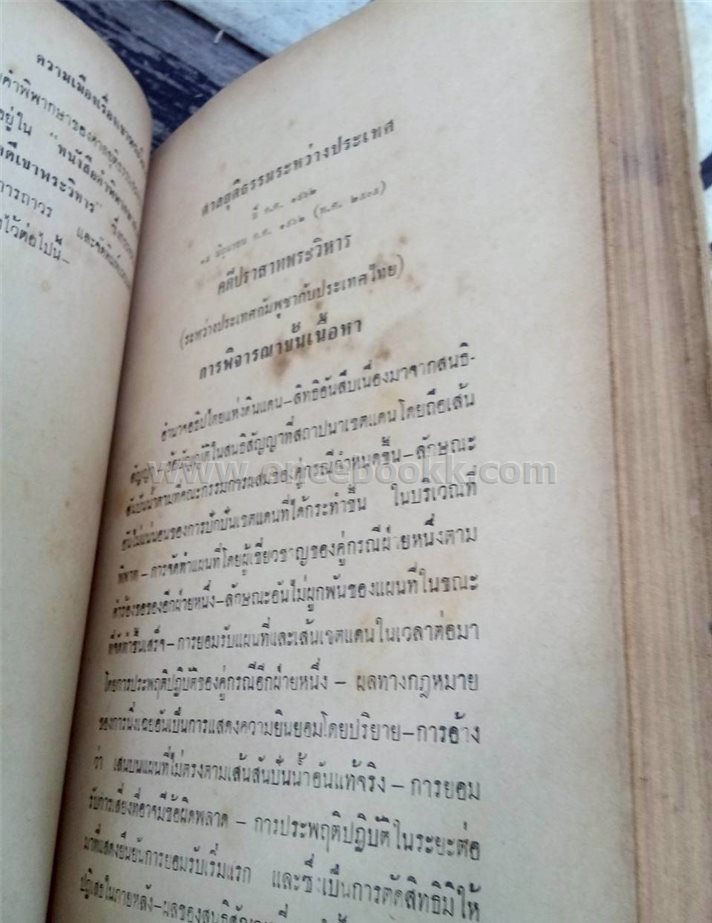 ความเมืองเรื่อง
คำพิพากษาของศาล
อยู่ใน “หนังสือคำพิพากษา
คดีเขาพระวิหาร” ซึ่ง
การถาวร และจัดพิมพ์
ไว้ต่อไปนี้–
ศาลยุติธรรมระหว่างประเทศ
ปี ค.ศ. ๑๙๖๒
๑๕ มิถุนายน ค.ศ. ๑๙๖๒ (พ.ศ. ๒๕๐๕)
คดีปราสาทพระวิหาร
(ระหว่างประเทศกัมพูชากับประเทศไทย)
การพิจารณาขั้นเนื้อหา
อำนาจอธิปไตยแห่งดินแดน–สิทธิอันสืบเนื่องมาจากสนธิ-
สัญญา–ข้อบัญญัติในสนธิสัญญาที่สถาปนาเขตแดนโดยถือเส้น
สันปันน้ำตามที่คณะกรรมการผสมของคู่กรณีกำหนดขึ้น–ลักษณะ
อันไม่แน่นอนของการปักปันเขตแดนที่ได้กระทำขึ้น ในบริเวณที่
พิพาท–การจัดทำแผนที่โดยผู้เชี่ยวชาญของคู่กรณีฝ่ายหนึ่งตาม
คำร้องขอของอีกฝ่ายหนึ่ง–ลักษณะอันไม่ผูกพันของแผนที่ในขณะ
ที่จัดทำขึ้นเสร็จ–การยอมรับแผนที่และเส้นเขตแดนในเวลาต่อมา
โดยการประพฤติปฏิบัติของคู่กรณีอีกฝ่ายหนึ่ง – ผลทางกฎหมาย
ของการนิ่งเฉยอันเป็นการแสดงความยินยอมโดยปริยาย–การอ้าง
ว่า เส้นบนแผนที่ไม่ตรงตามเส้นสันปันน้ำอันแท้จริง – การยอม
รับการเสี่ยงที่อาจมีข้อผิดพลาด – การประพฤติปฏิบัติในระยะต่อ
มาที่แสดงยืนยันการยอมรับเริ่มแรก และซึ่งเป็นการตัดสิทธิมิให้
ปฏิเสธในภายหลัง–ผลของสนธิสัญญา